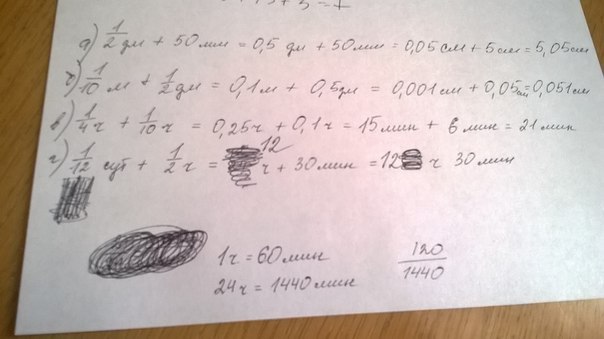 а) 1/2 дм + 50 мм = 0,5 дм + 50 мм = 0,05 см + 5 см = 5,05 см
б) 1/10 м + 1/2 дм = 0,1 м + 0,5 дм = 0,001 см + 0,05 см = 0,051 см
в) 1/4 ч + 1/10 ч = 0,25 ч + 0,1 ч = 15 мин + 6 мин = 21 мин
г) 1/12 сут + 1/2 ч = 12 ч + 30 мин = 12 ч 30 мин
1 ч = 60 мин 120/1440
24 ч = 1440 мин